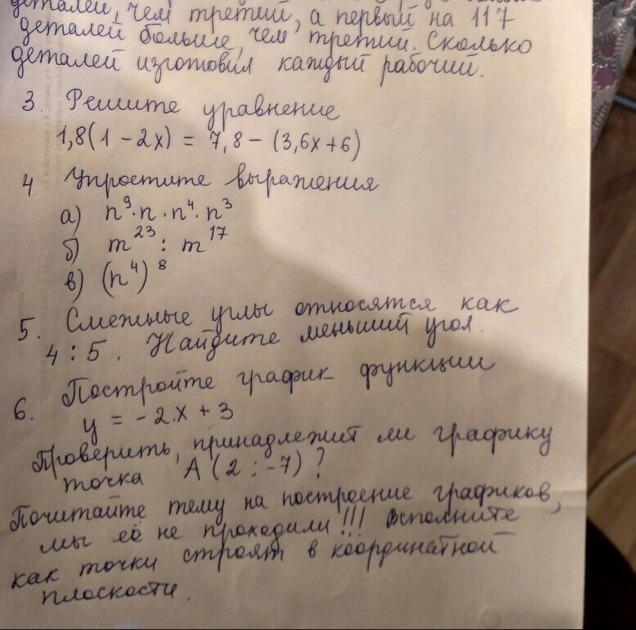 деталей, чем третий, а первый на 117
деталей больше, чем третий. Сколько
деталей изготовил каждый рабочий.
3. Решите уравнение
1,8(1 – 2x) = 7,8 – (3,6x + 6)
4 Упростите выражения
а) n⁹·n·n⁴·n³
б) m²³ : m¹⁷
в) (n⁴)⁸
5. Смежные углы относятся как
4 : 5. Найдите меньший угол.
6. Постройте график функции
y = -2x + 3
Проверить, принадлежит ли графику
точка A (2 ; -7) ?
Почитайте тему на построение графиков,
мы её не проходили!!! Вспомните
как точки строят в координатной
плоскости.